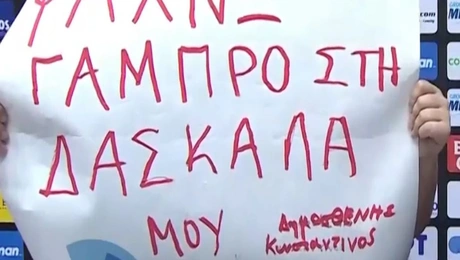 ΓΑΜΠΡΟ ΣΤΗ
ΔΑΣΚΑΛΑ
ΜΟΥ
ΔημοσθΕΝΗΣ
Κωνσταντινος